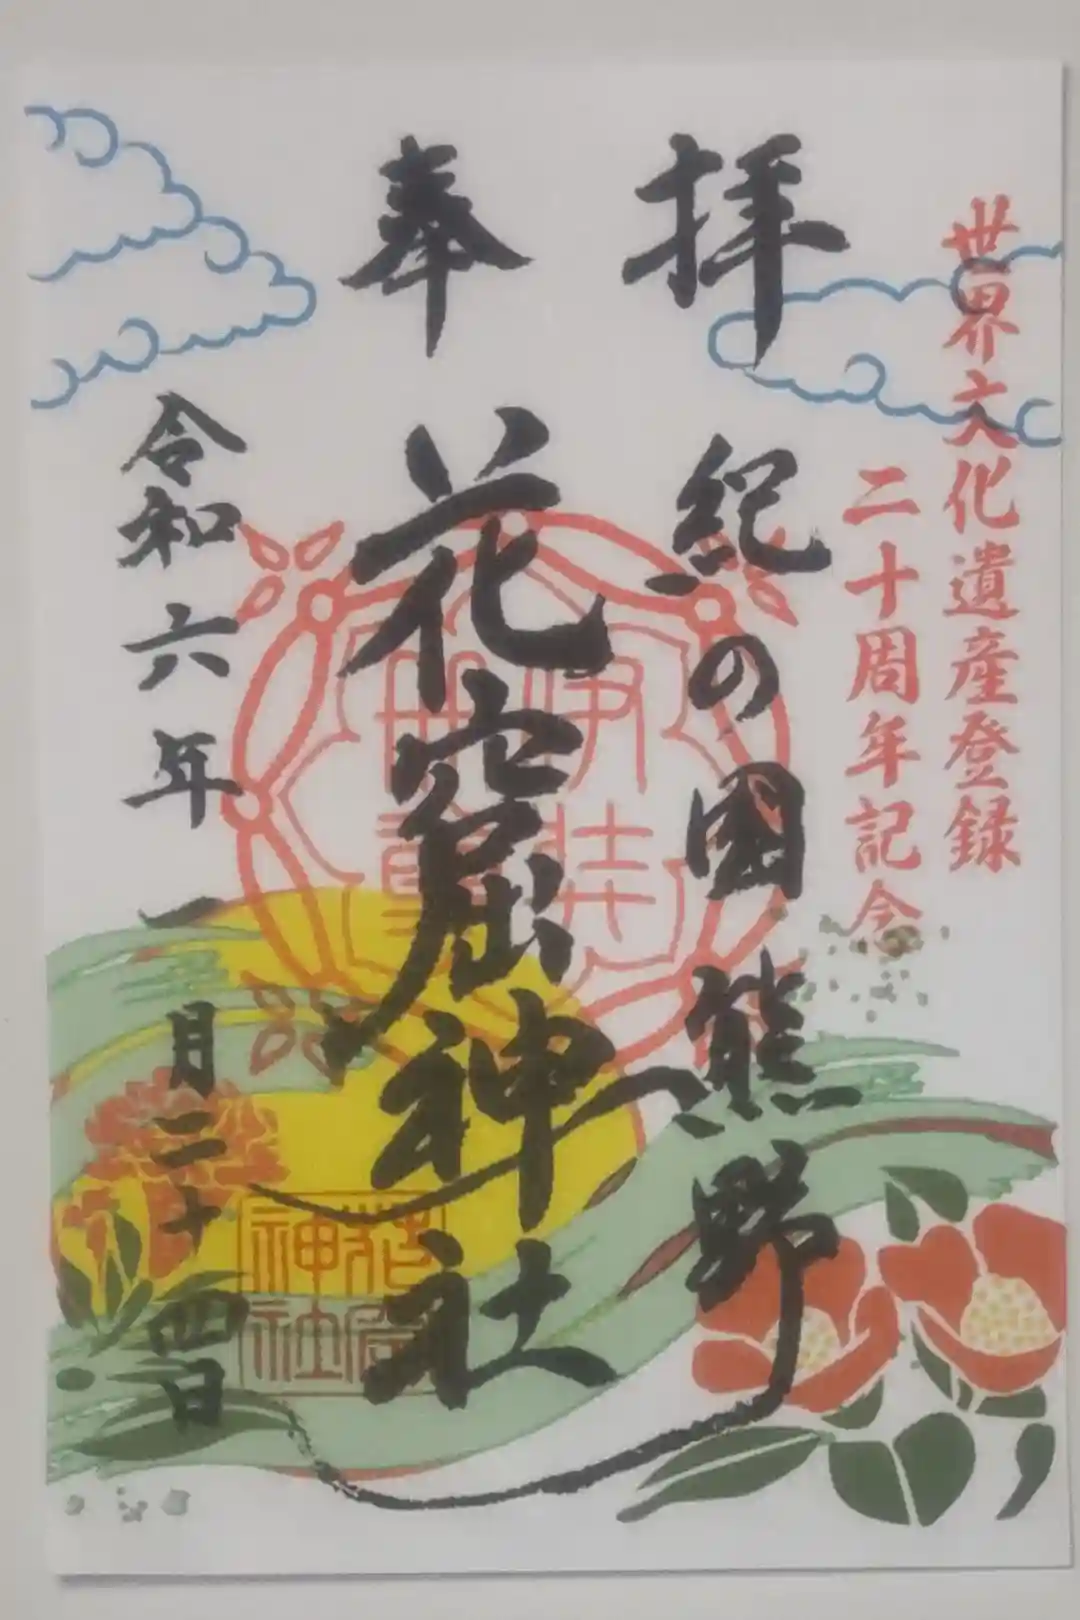 世界文化遺産登録
二十周年記念
奉拝
紀の国熊野
花窟神社
令和六年一月二十四日
花窟神社